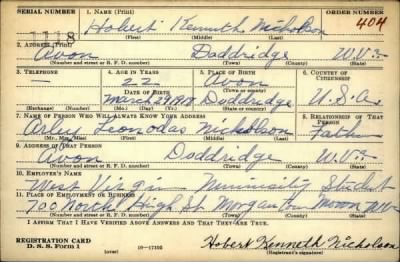 SERIAL NUMBER 1. NAME (Print) ORDER NUMBER
1118 Hobert Kenneth Nicholson 404
(First) (Middle) (Last)
2. ADDRESS (Print)
Avon Doddridge W.Va.
(Number and street or R. F. D. number) (Town) (County) (State)
3. TELEPHONE 4. AGE IN YEARS 5. PLACE OF BIRTH 6. COUNTRY OF CITIZENSHIP
— 22 Avon
(Town or county)
DATE OF BIRTH
Doddridge U.S.A.
(Exchange) (Number) (Mo.) (Day) (Yr.) (State or country)
7. NAME OF PERSON WHO WILL ALWAYS KNOW YOUR ADDRESS 8. RELATIONSHIP OF THAT PERSON
Arley Leonodas Nicholson Father
(Mr., Mrs., Miss) (First) (Middle) (Last)
9. ADDRESS OF THAT PERSON
Avon Doddridge W.Va.
(Number and street or R. F. D. number) (Town) (County) (State)
10. EMPLOYER'S NAME
West Virginia University Student
11. PLACE OF EMPLOYMENT OR BUSINESS
700 North High St. Morgantown
(Number and street or R. F. D. number) (Town) (County) (State)
I AFFIRM THAT I HAVE VERIFIED ABOVE ANSWERS AND THAT THEY ARE TRUE.
REGISTRATION CARD
D. S. S. Form 1 Hobert Kenneth Nicholson
(Registrant's signature)